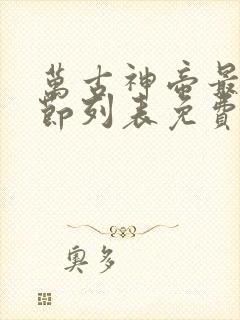 萬古神帝最
節列表免費
奧多